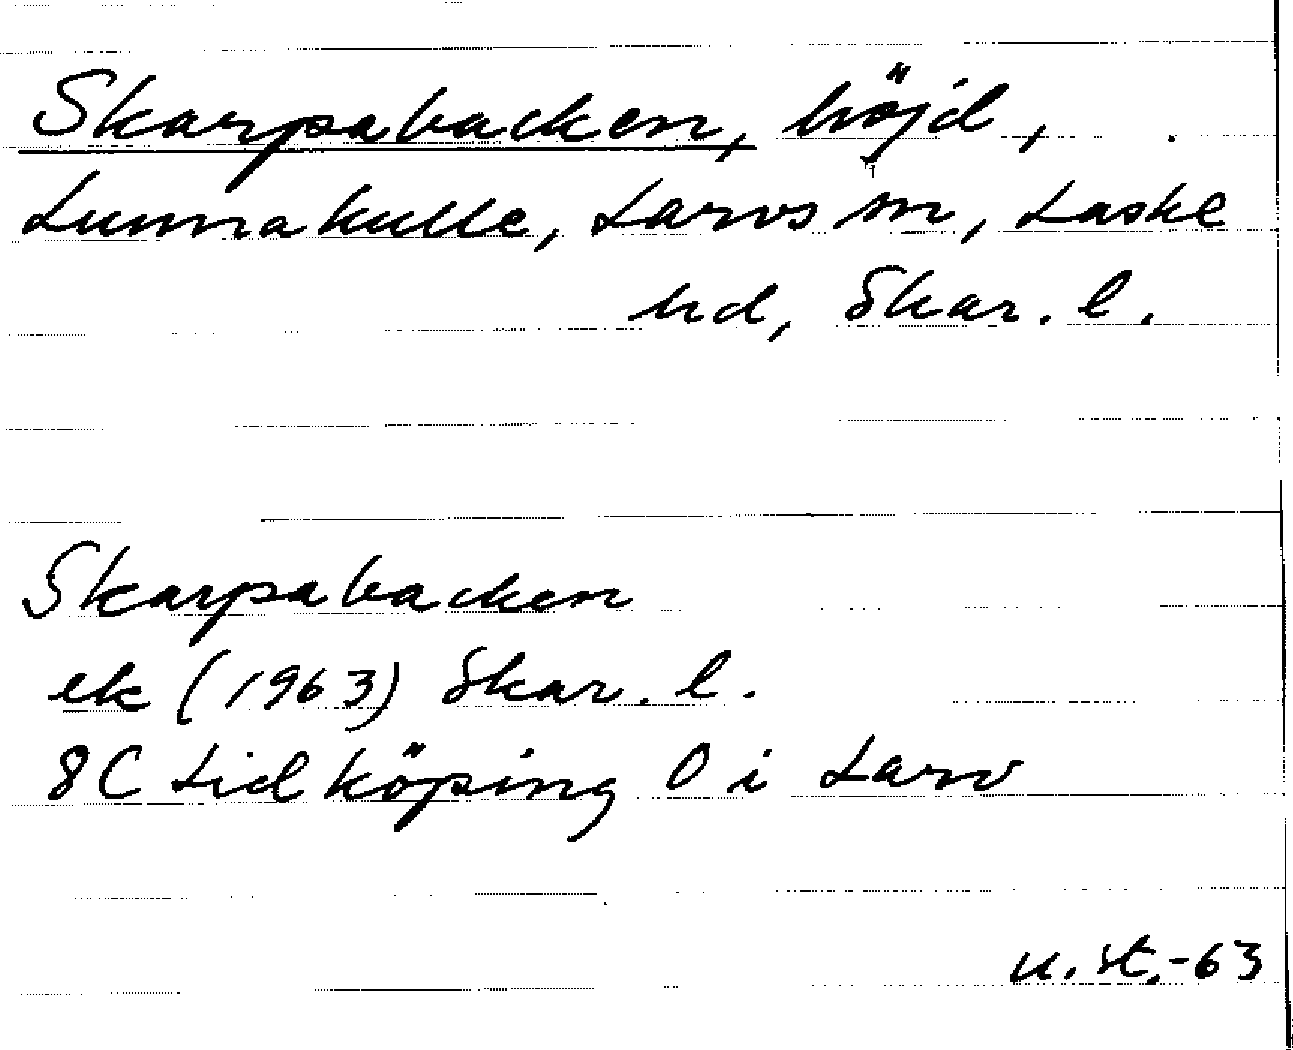 Skarpabacken, höjd,
Lunnakulle, Larvs sn, Laske
hd, Skar. l.
Skarpabacken
ek (1963) Skar. l.
8C Lidköping O i Larv
u. st.-63